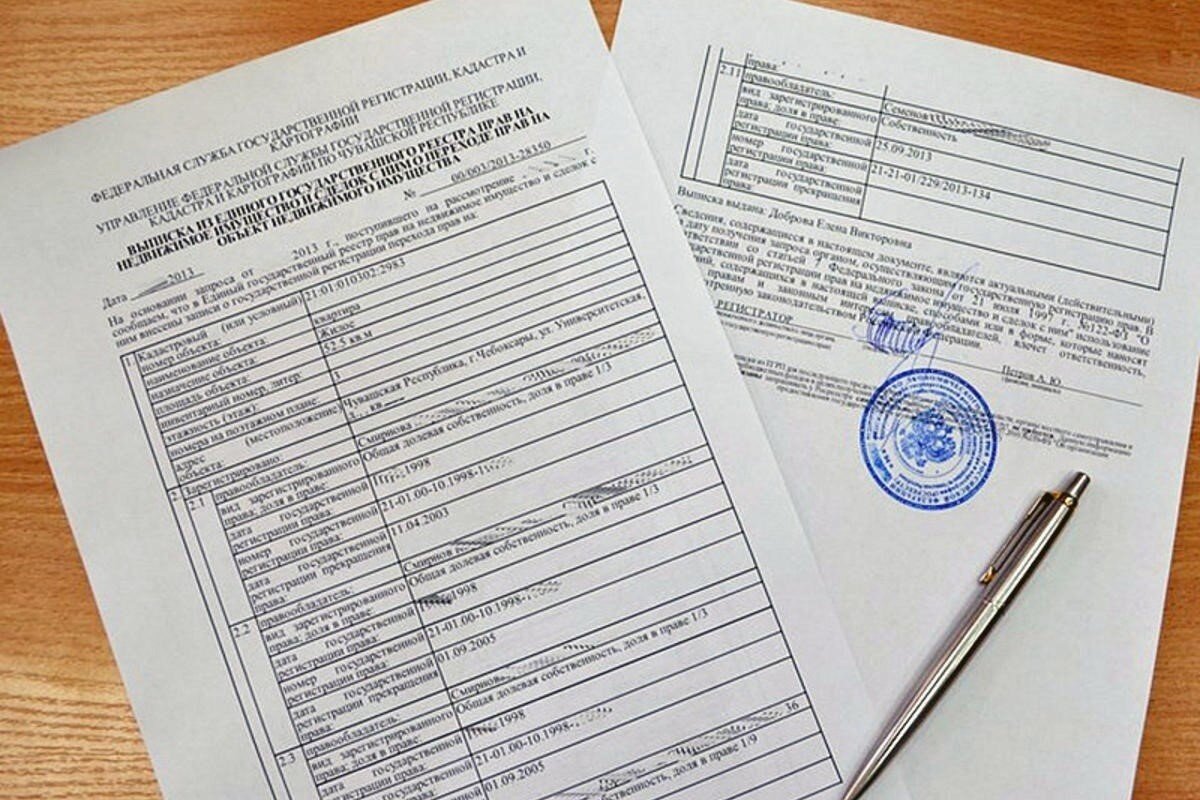 ФЕДЕРАЛЬНАЯ СЛУЖБА ГОСУДАРСТВЕННОЙ РЕГИСТРАЦИИ, КАДАСТРА И
КАРТОГРАФИИ
УПРАВЛЕНИЕ ФЕДЕРАЛЬНОЙ СЛУЖБЫ ГОСУДАРСТВЕННОЙ РЕГИСТРАЦИИ,
КАДАСТРА И КАРТОГРАФИИ ПО ЧУВАШСКОЙ РЕСПУБЛИКЕ
ВЫПИСКА ИЗ ЕДИНОГО ГОСУДАРСТВЕННОГО РЕЕСТРА ПРАВ НА
НЕДВИЖИМОЕ ИМУЩЕСТВО И СДЕЛОК С НИМ О ПЕРЕХОДЕ ПРАВ НА
ОБЪЕКТ НЕДВИЖИМОГО ИМУЩЕСТВА
Дата 2013 № 00/003/2013-28350
На основании запроса от 2013 г., поступившего на рассмотрение г.,
сообщаем, что в Единый государственный реестр прав на недвижимое имущество и сделок с
ним внесены записи о государственной регистрации перехода прав на:
1. Кадастровый (или условный) номер объекта: 21:01:010302:2983
наименование объекта: квартира
назначение объекта: Жилое
площадь объекта: 52.5 кв.м
инвентарный номер, литер:
этажность (этаж): 3
номера на поэтажном плане:
адрес (местоположение) объекта: Чувашская Республика, г.Чебоксары, ул. Университетская,
д. , кв.
2. Зарегистрировано:
2.1 правообладатель: Смирнова
вид зарегистрированного права; доля в праве: Общая долевая собственность, доля в праве 1/3
дата государственной регистрации права: 1998
номер государственной регистрации права: 21-01.00-10.1998-
дата государственной регистрации прекращения права: 11.04.2003
2.2 правообладатель: Смирнов
вид зарегистрированного права; доля в праве: Общая долевая собственность, доля в праве 1/3
дата государственной регистрации права: 1998
номер государственной регистрации права: 21-01.00-10.1998-
дата государственной регистрации прекращения права: 01.09.2005
2.3 правообладатель: Смирнов
вид зарегистрированного права; доля в праве: Общая долевая собственность, доля в праве 1/3
дата государственной регистрации права: 1998
номер государственной 21-01.00-10.1998- 36
01.09.2005
собственность, доля в праве 1/9
права:
2.11 правообладатель: Семенов
вид зарегистрированного права; доля в праве: Собственность
дата государственной регистрации права: 25.09.2013
номер государственной регистрации права: 21-21-01/229/2013-134
дата государственной регистрации прекращения права:
Выписка выдана: Доброва Елена Викторовна
Сведения, содержащиеся в настоящем документе, являются актуальными (действительными)
на дату получения запроса органом, осуществляющим государственную регистрацию прав. В
соответствии со статьей 7 Федерального закона от 21 июля 1997 г. №122-ФЗ "О
государственной регистрации прав на недвижимое имущество и сделок с ним" использование
сведений, содержащихся в настоящей выписке, способами или в форме, которые наносят
правам и законным интересам правообладателей, влечет ответственность,
предусмотренную законодательством Российской Федерации.
РЕГИСТРАТОР
Петров А. Ю.